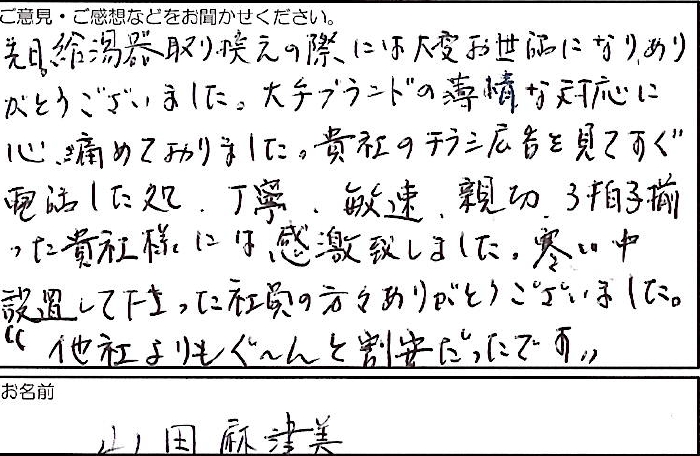 ご意見・ご感想などをお聞かせください。
先日、給湯器取り換えの際には大変お世話になり、あり
がとうございました。大手ブランドの薄情な対応に
心痛めておりました。貴社のチラシ広告を見てすぐ
電話した処、丁寧、敏速、親切、3拍子揃
った貴社様には感激致しました。寒い中
設置して下さった社員の方々ありがとうございました。
“他社よりもぐ〜んと割安だったです”
お名前
山田麻津美